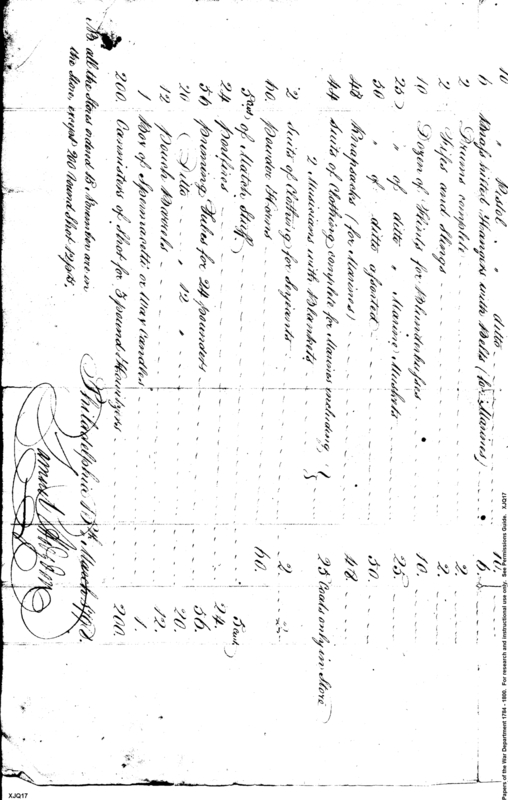 10 " Pistol " ditto 10.
6 Brass hilted Hangers with Belts (for Marines) 6.
2 Drums complete 2.
2 Fifes and Slings 2.
10 Dozen of Flints for Blunderbusses 10.
25 " of ditto " Marine Muskets 25.
50 " of ditto assorted 50.
48 Knapsacks (for Marines) 48.
44 Suits of Clothing complete for Marines including
2 Musicians with Blankets
25 Coats only in Store
2 Suits of Clothing for Serjeants 2.
60 Powder Horns 60.
3 cwt. of Match Stuff 3 cwt.
24 Postfires 24.
56 Priming Tubes for 24 pounders 56.
20 Ditto " 12 " 20.
12 Pouch Barrels 12.
1 Box of Spermacetti or Wax Candles 1.
200 Cannisters of Shot for 5 pound Howitzers 200.
NB all the Stores ordered 18. November are in
the Store, except 200 Round Shot 12 pdrs.
Philadelphia 17th March 1798.
Samuel Hodgdon
Papers of the War Department 1784 - 1800. For research and instructional use only. See Permissions Guide. XJQ17
XJQ17